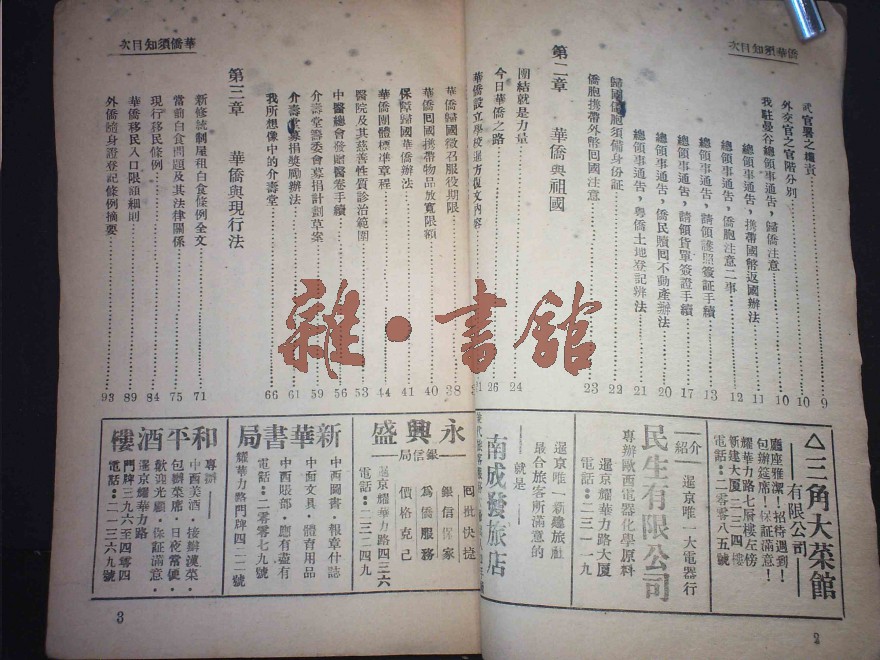 僑華須知目次
武官署之權責 9
外交官之官階分別 10
我駐曼谷總領事通告，歸僑注意 10
總領事通告，携帶國幣返國辦法 11
總領事通告，僑胞注意二事 12
總領事通告，請領護照簽証手續 13
總領事通告，請領貨單簽證手續 17
總領事通告，僑民贖囘不動產辦法 20
總領事通告，粵僑土地登記辦法 21
歸國僑胞須備身份証 22
僑胞携帶外幣囘國注意 23
第二章 華僑與祖國
團結就是力量 24
今日華僑之路 26
△三角大菜館
有限公司
廳座雅潔！招待週到！
包辦筵席！保証滿意！
耀華力路七層樓左傍
新建大厦二三四樓
電話：二零零八五號
介紹
暹京唯一大電器行
民生有限公司
專辦歐西電器化學原料
暹京耀華力路大厦
電話：二三一一九
暹京唯一新建旅社
最合旅客所滿意的
就是
南成發旅店
2
雜·書館
華僑須知目次
華僑設立學校還方復文內容 31
華僑歸國徵召服役期限 38
華僑囘國携帶物品放寬限額 40
保障歸國華僑辦法 41
華僑團體標準章程 44
醫院及其慈善性質診治範圍 53
中醫總會發貺醫卷手續 56
介壽堂籌委會募捐計劃草案 59
介壽堂募捐獎勵辦法 61
我所想像中的介壽堂 66
第三章 華僑與現行法
新修統制屋租白食條例全文 71
當前白食問題及其法律關係 75
現行移民條例 84
華僑移民入口限額細則 89
外僑隨身證登記條例摘要 93
永興盛
銀信局
囘批快捷
銀信保家
為僑服務
價格克己
暹京耀華力路四三六
電話：二三二四九
新華書局
中西圖書·報章什誌
中西文具·體育用品
中西賬部·應有盡有
耀華力路門牌四二二號
電話：二零零七九號
和平酒樓
專辦
中西美酒·接辦漢菜·
包辦菜席·日夜常便·
歡迎光顧·保証滿意·
暹京耀華力路
門牌三九六至四零四
電話：二一三六九號
3